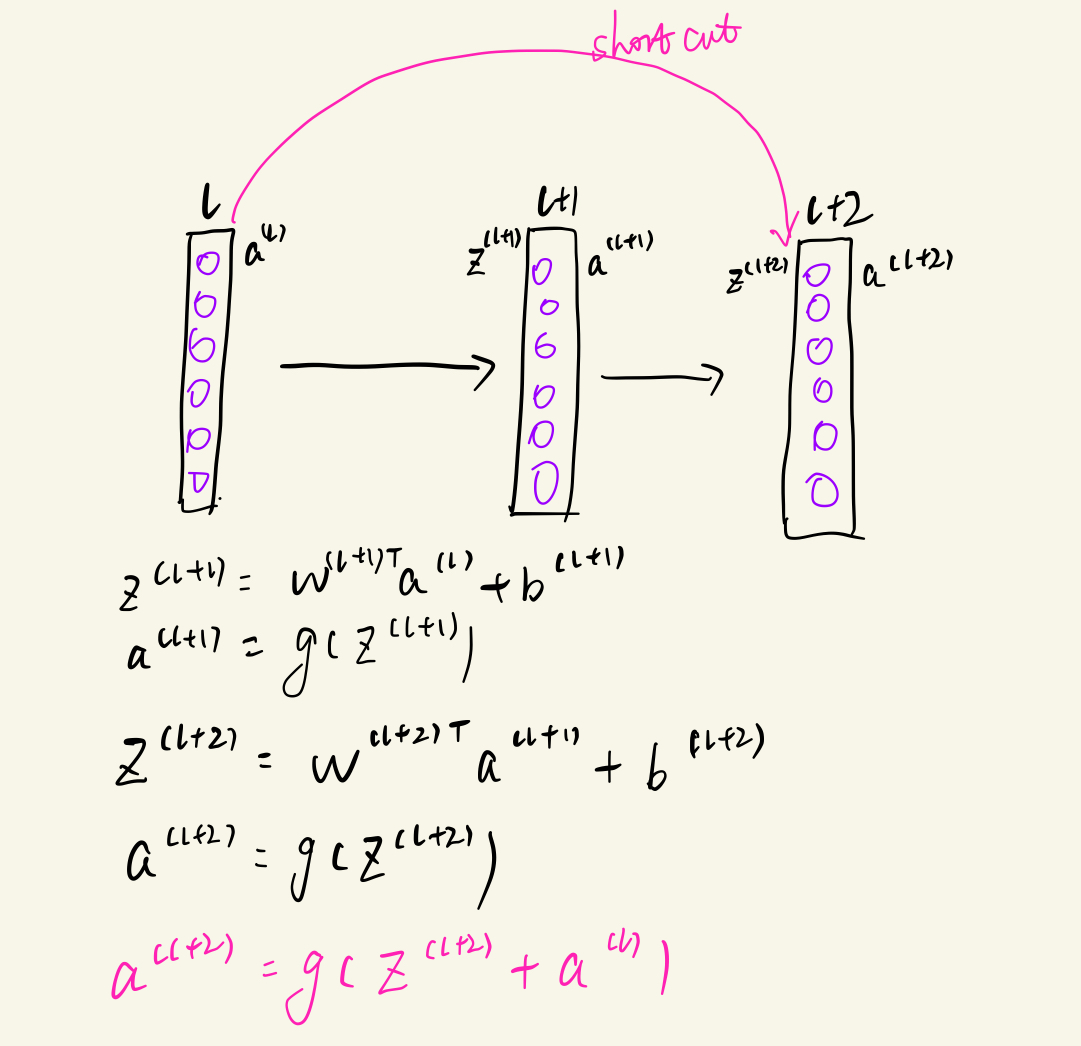 short cut
l l+1 l+2
a^(l) z^(l+1) a^(l+1) z^(l+2) a^(l+2)
z^(l+1) = w^(l+1)T a^(l) + b^(l+1)
a^(l+1) = g(z^(l+1))
z^(l+2) = w^(l+2)T a^(l+1) + b^(l+2)
a^(l+2) = g(z^(l+2))
a^(l+2) = g(z^(l+2) + a^(l))